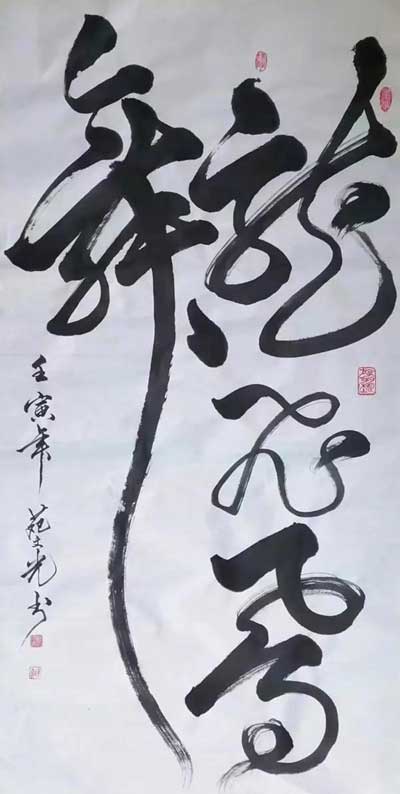 龍飛鳳
舞
壬寅年 范文光书